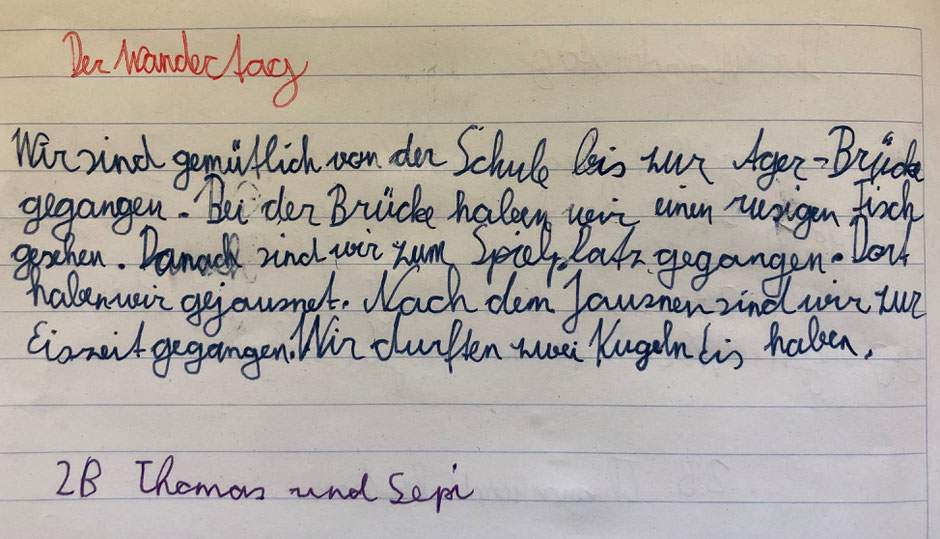 Der Wandertag
Wir sind gemütlich von der Schule bis zur Ager-Brücke
gegangen. Bei der Brücke haben wir einen riesigen Fisch
gesehen. Danach sind wir zum Spielplatz gegangen. Dort
haben wir gejausnet. Nach dem Jausnen sind wir zur
Eiszeit gegangen. Wir durften zwei Kugeln Eis haben.
2B Thomas und Sepi